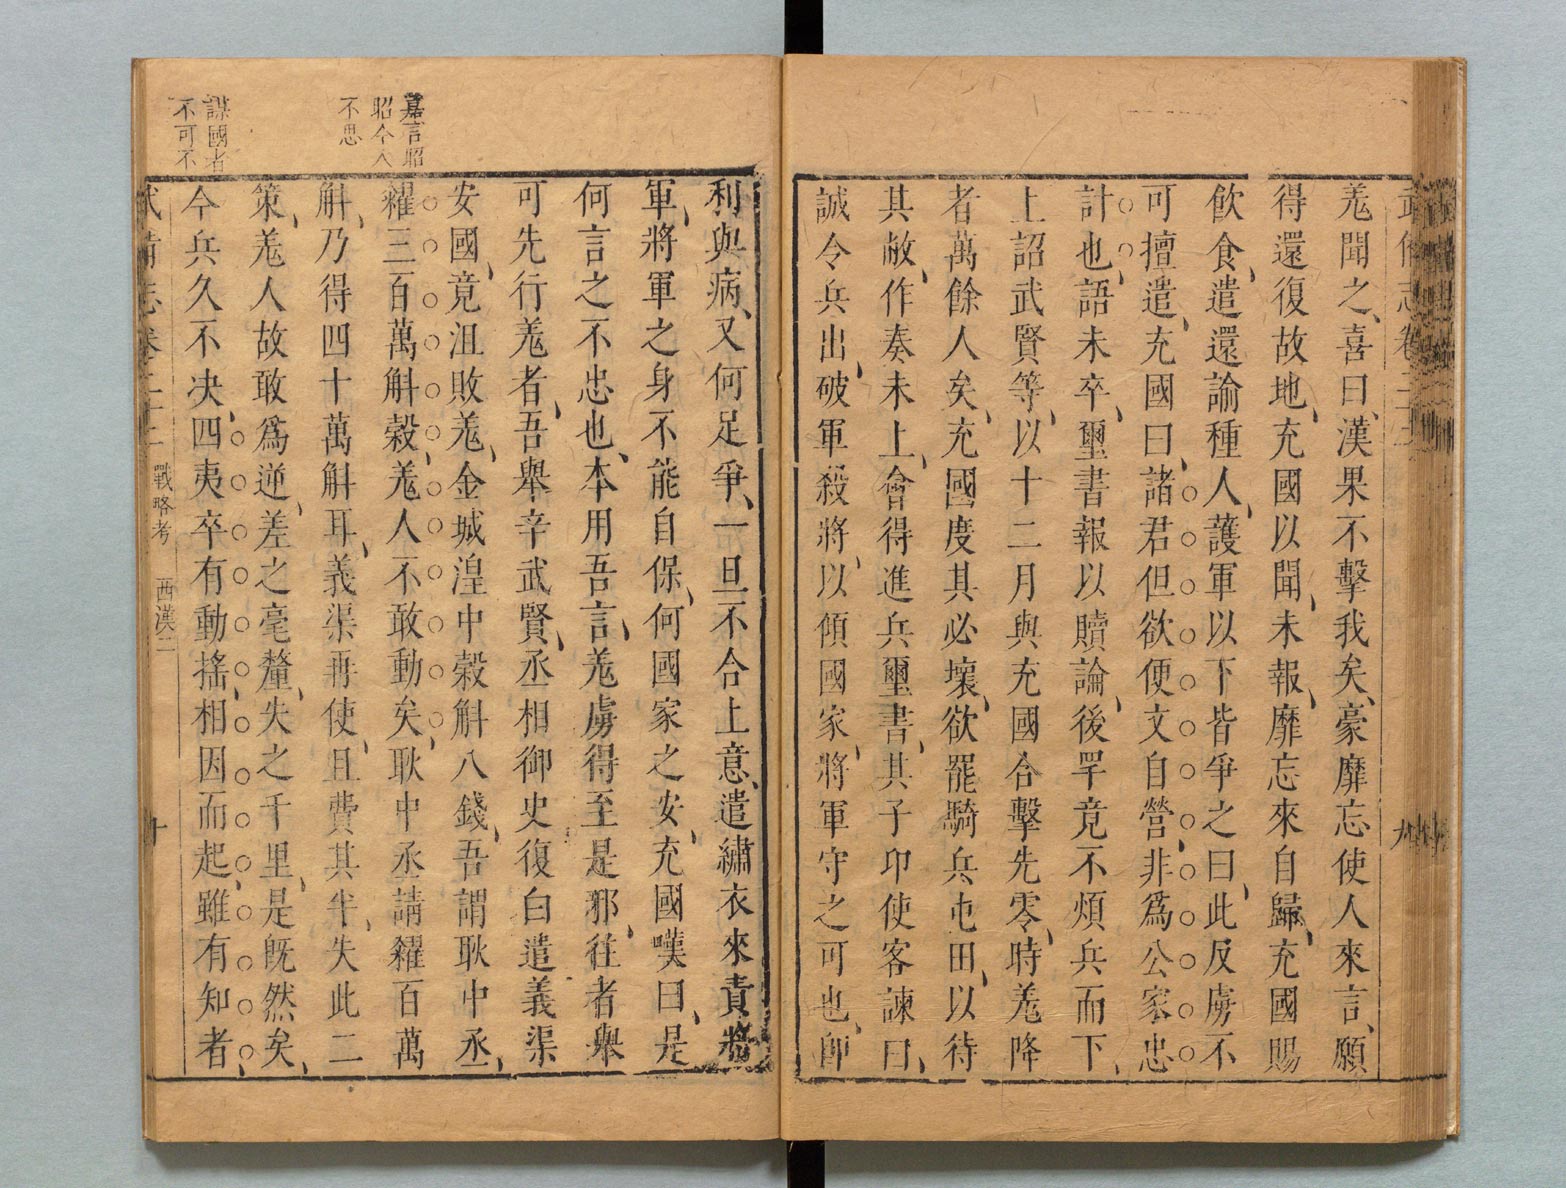 武備志卷二十二
九
羗聞之、喜曰、漢果不擊我矣、豪靡忘使人來言、願
得還復故地、充國以聞、未報、靡忘來自歸、充國賜
飲食、遣還諭種人、護軍以下皆爭之曰、此反虜不
可擅遣、充國曰、諸君但欲便文自營、非爲公家忠
計也、語未卒、璽書報以贖論、後罕竟不煩兵而下、
上詔武賢等、以十二月與充國合擊先零、時羗降
者萬餘人矣、充國度其必壞、欲罷騎兵屯田、以待
其敝、作奏未上、會得進兵璽書、其子卬使客諫曰、
誠令兵出、破軍殺將、以傾國家、將軍守之可也、卽
利與病、又何足爭、一旦不合上意、遣繡衣來責將
軍、將軍之身不能自保、何國家之安、充國嘆曰、是
何言之不忠也、本用吾言、羗虜得至是邪、往者舉
可先行羗者、吾舉辛武賢、丞相御史復白遣義渠
安國、竟沮敗羗、金城湟中穀斛八錢、吾謂耿中丞、
糴三百萬斛穀、羗人不敢動矣、耿中丞請糴百萬
斛、乃得四十萬斛耳、義渠再使、且費其半、失此二
策、羗人故敢爲逆、差之毫釐、失之千里、是旣然矣、
今兵久不决、四夷卒有動搖、相因而起、雖有知者、
嘉言昭
昭今人
不思
謀國者
不可不
武備志卷二十二
戰略考
西漢二
十